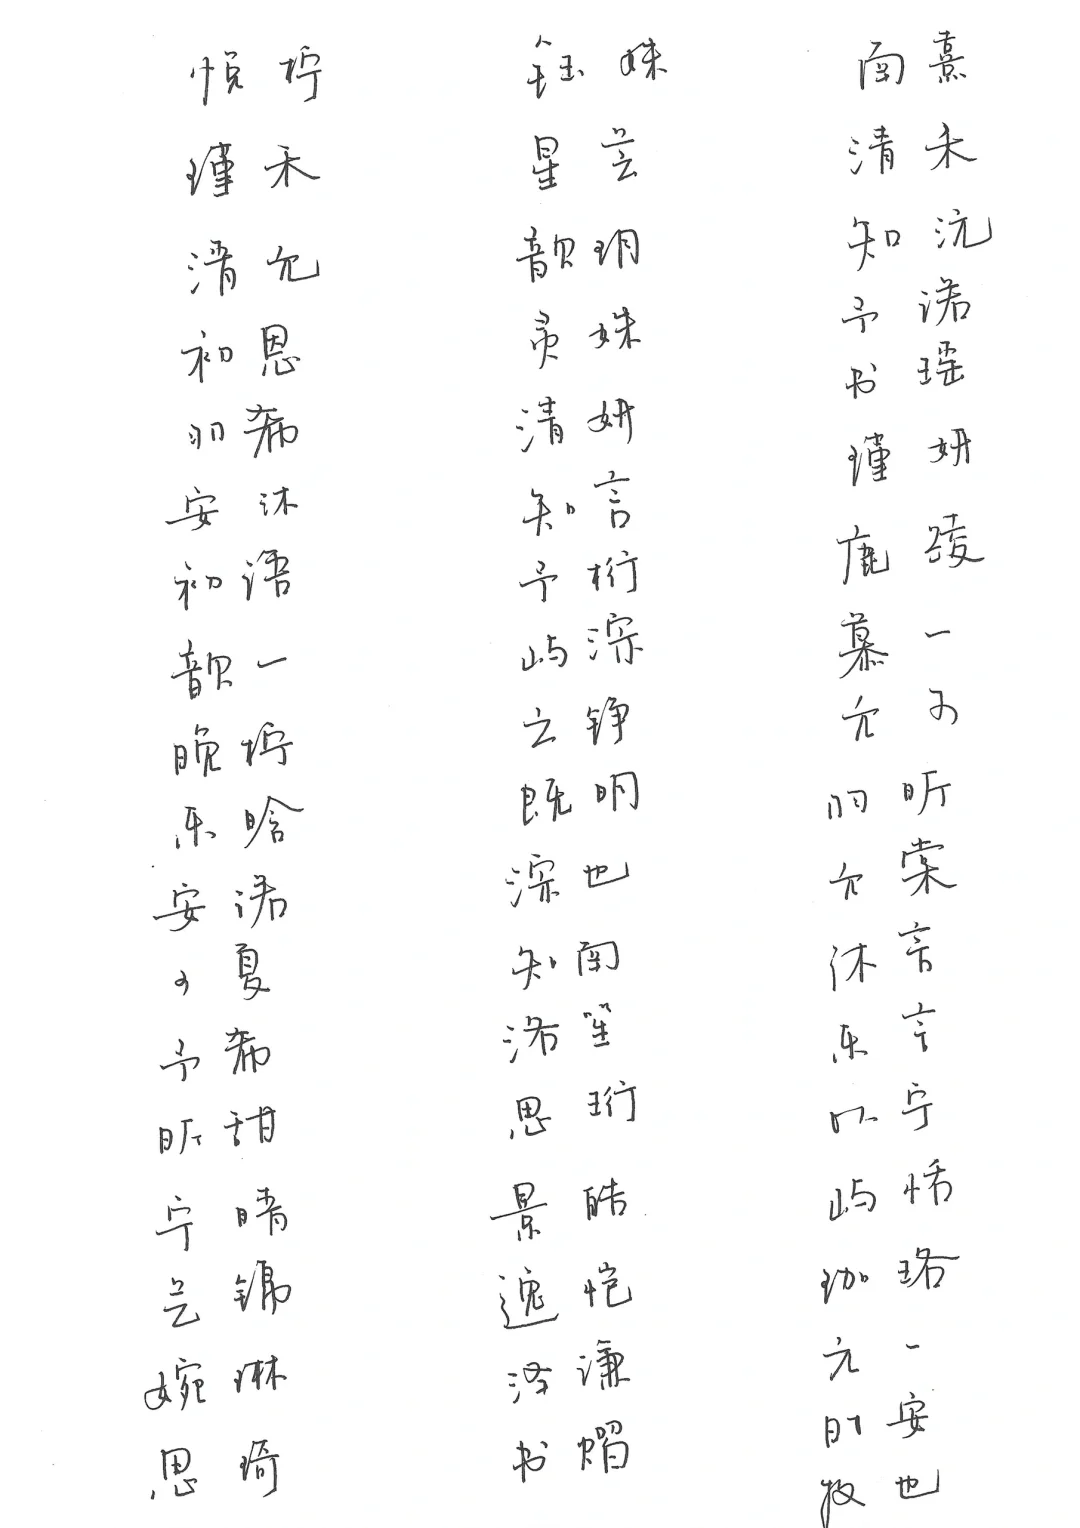 悦柠
瑾禾
清允
初恩
羽希
安沐
初语
韵一
晚柠
乐晗
安诺
夏
予希
昕甜
宁晴
芸锦
婉琳
思琦
钰姝
星芸
韵玥
灵姝
清妍
知言
予桁
屿淙
立铮
既明
淙也
知南
洛笙
思珩
景皓
逸恺
泽谦
书熠
南熹
清禾
知沅
予诺
书瑶
瑾妍
鹿
慕一
允
羽昕
允棠
沐言
乐言
以宁
屿恬
珈珞
元一
时安
牧也